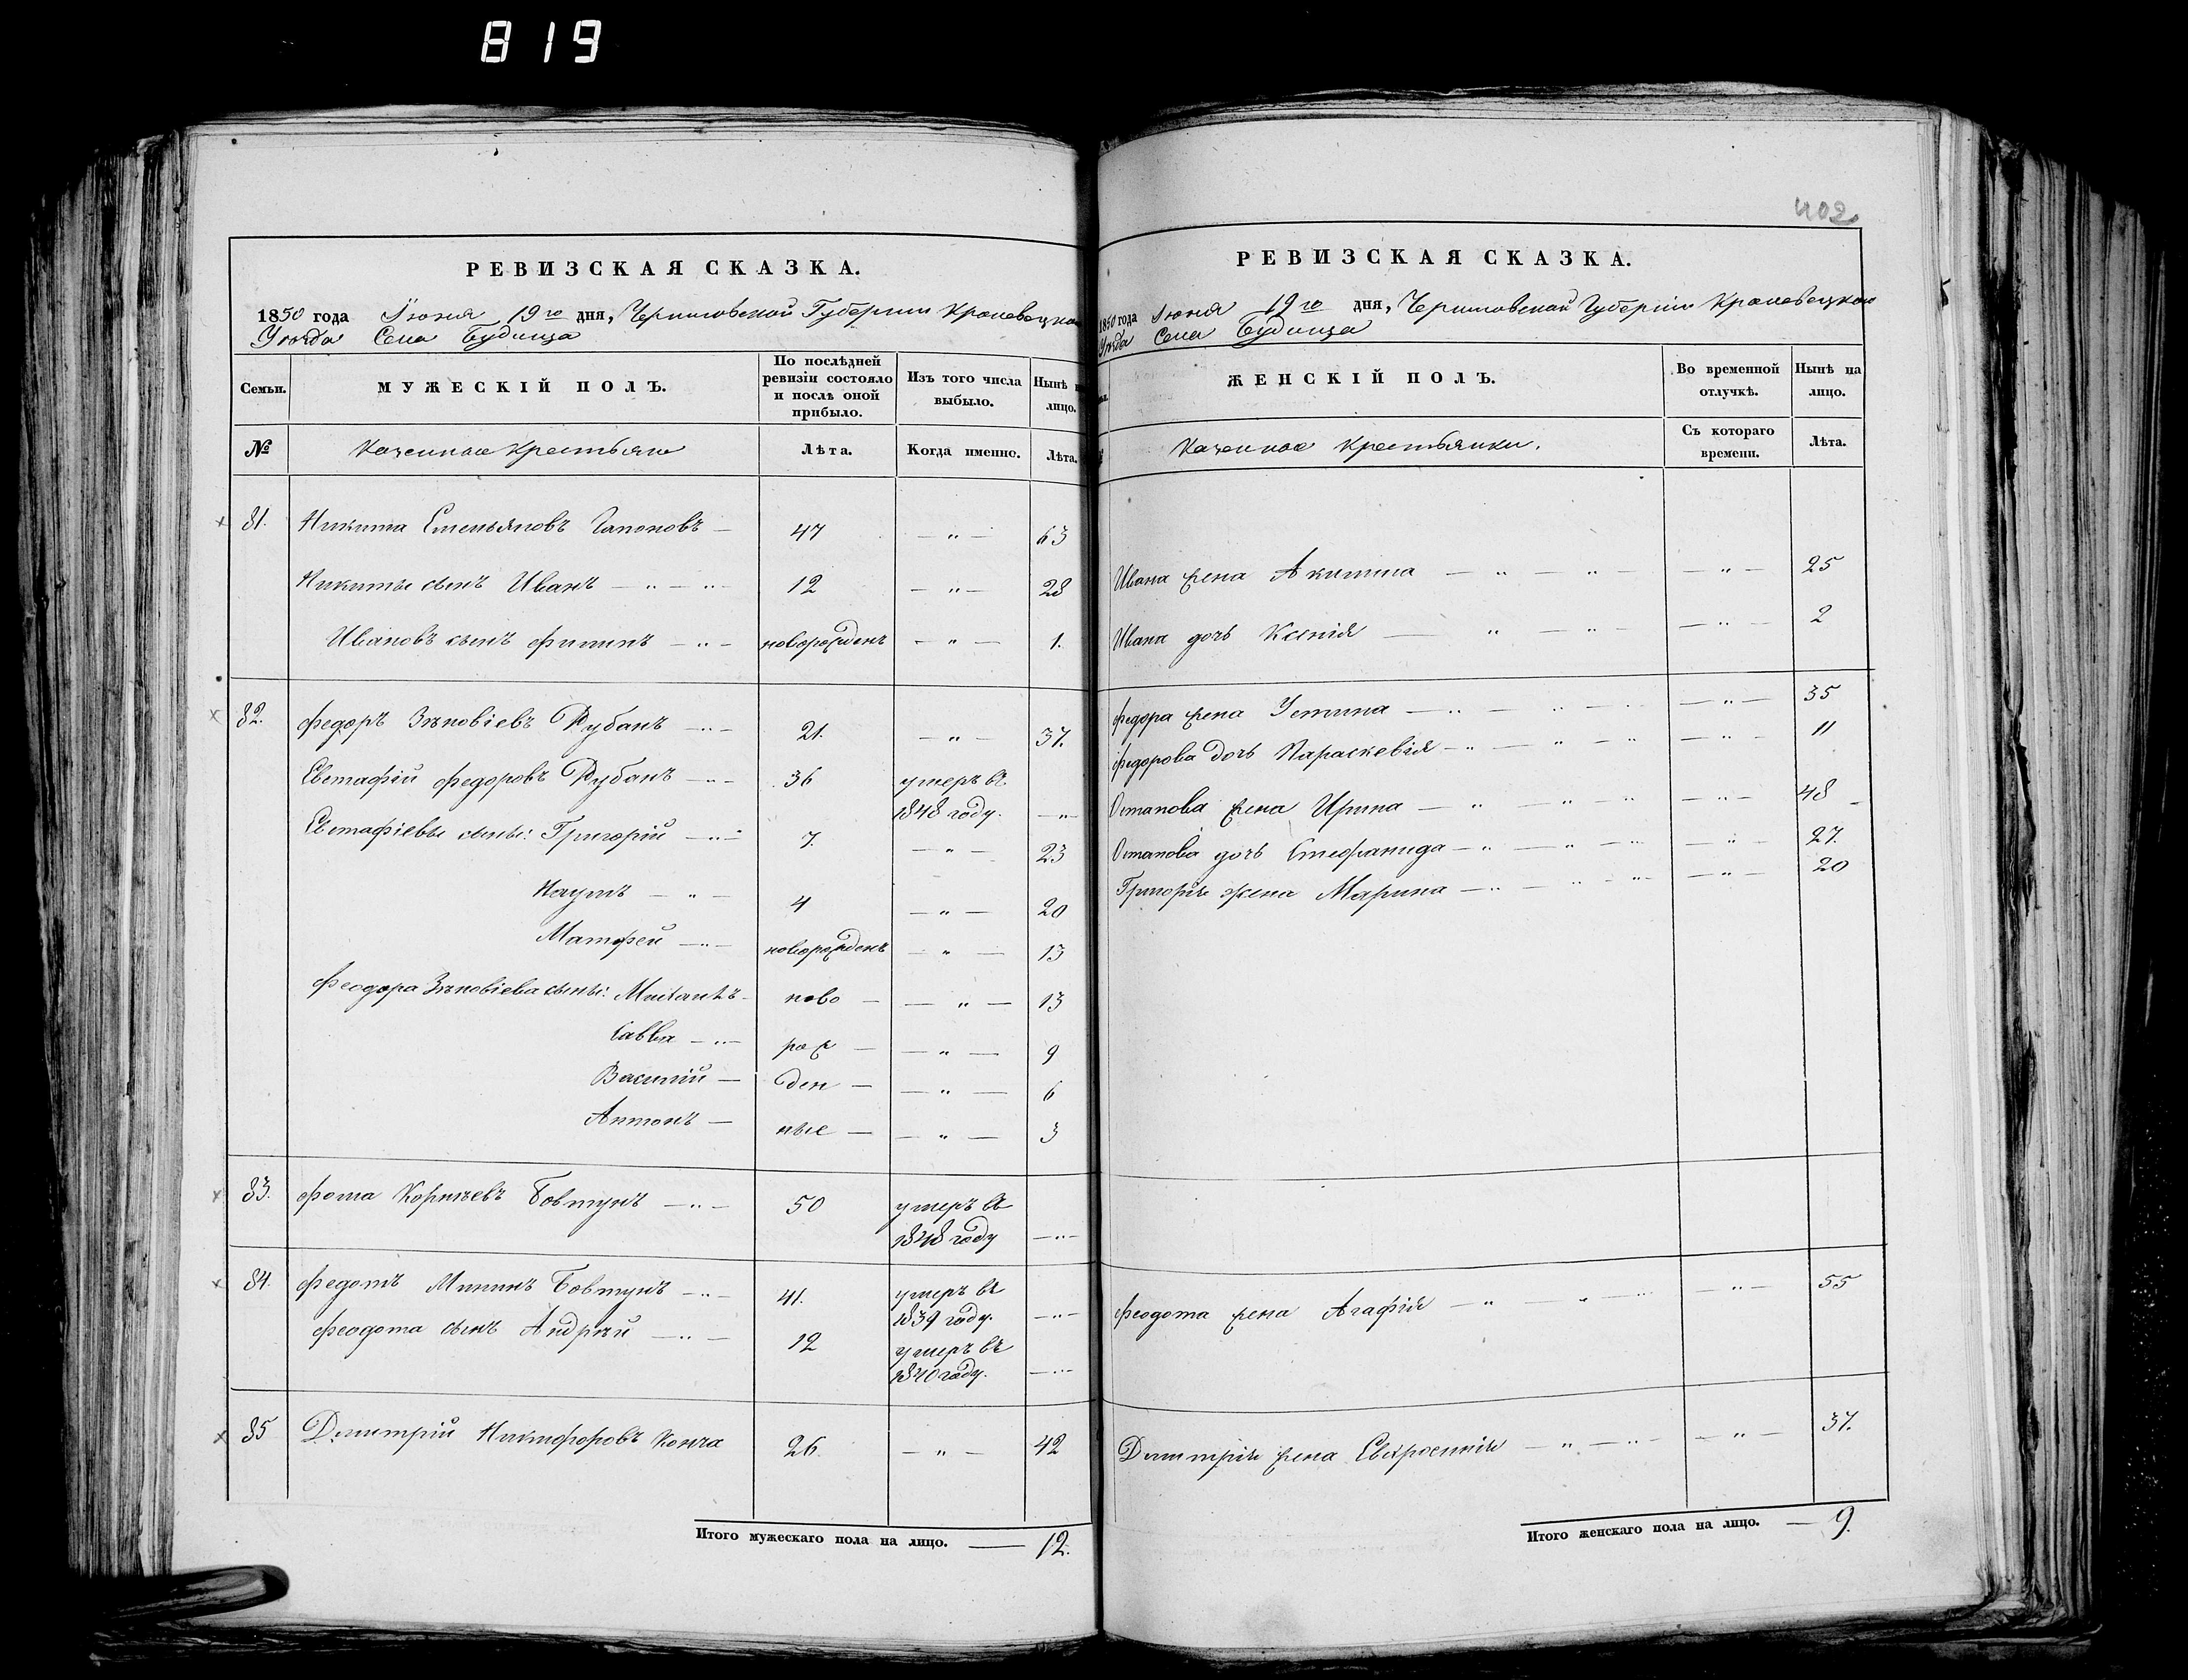 819
РЕВИЗСКАЯ СКАЗКА.
1850 года Июня 19го дня, Черниговской Губернии Кролевецкаго
Уѣзда Села Будища
Семьи. МУЖЕСКІЙ ПОЛЪ. По послѣдней ревизіи состояло и послѣ оной прибыло. Изъ того числа выбыло. Нынѣ на лицо.
№ Казенные Крестьяне Лѣта. Когда именно. Лѣта.
81. Никита Емельяновъ Гапоновъ — 47 — „ — 63
Никиты сынъ Иванъ — „ — „ — 12 — „ — 28
Ивановъ сынъ Филипъ — „ — новорожденъ — „ — 1.
82. Федоръ Зѣновіевъ Рубанъ — „ — 21. — „ — 37.
Евстафій Федоровъ Рубанъ — „ — 36 умеръ въ
1848 году. — „ —
Евстафіевы сыны: Григорій — „ — 7. — „ — 23
Наумъ — „ — 4 — „ — 20
Матфей — „ — новорожденъ — „ — 13
Феодора Зѣновіева сыны: Михаилъ — ново — — „ — 13
Савва — „ — рож — — „ — 9
Василій — ден — — „ — 6
Антонъ — ные — — „ — 3
83. Фома Корнѣевъ Бовтунъ — „ — 50 умеръ въ
1848 году — „ —
84. Федотъ Мининъ Бовтунъ — „ — 41. умеръ въ
1839 году. — „ —
Феодота сынъ Андрѣй — „ — 12 умеръ въ
1840 году. — „ —
85 Дмитрій Никифоровъ Конча 26. — „ — 42
Итого мужескаго пола на лицо. — 12.
402
РЕВИЗСКАЯ СКАЗКА.
1850 года Июня 19го дня, Черниговской Губерніи Кролевецкаго
Уѣзда Села Будища
ЖЕНСКІЙ ПОЛЪ. Во временной отлучкѣ. Нынѣ на лицо.
Казенные Крестьянки. Съ котораго времени. Лѣта.
Ивана жена Акилина — „ — „ — — „ — 25
Ивана дочь Ксенія — „ „ — — „ — 2
Федора жена Устина — „ — „ — — „ — 35
Федорова дочь Параскевія — „ — „ — „ — „ — 11
Остапова жена Ирина — „ — „ „ — „ — 48
Остапова дочь Стефанида — „ — „ — „ „ — 27.
Григорія жена Марина — „ — „ — „ — „ — 20
Феодота жена Агафія — „ — „ — „ — „ — 55
Дмитрія жена Евфросинія — „ — „ — — „ — 37.
Итого женскаго пола на лицо. — 9.